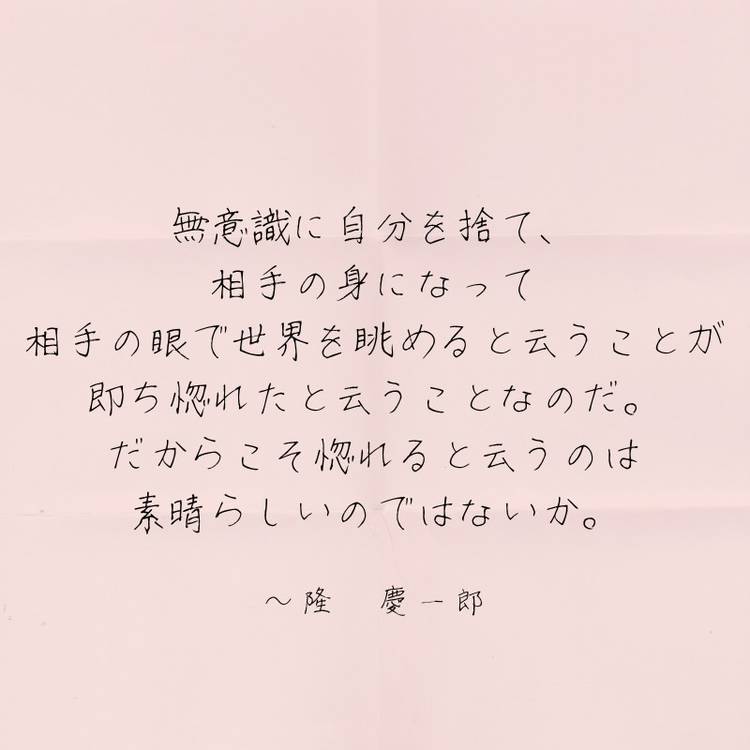 無意識に自分を捨て、
相手の身になって
相手の眼で世界を眺めると云うことが
即ち惚れたと云うことなのだ。
だからこそ惚れると云うのは
素晴らしいのではないか。
～隆 慶一郎